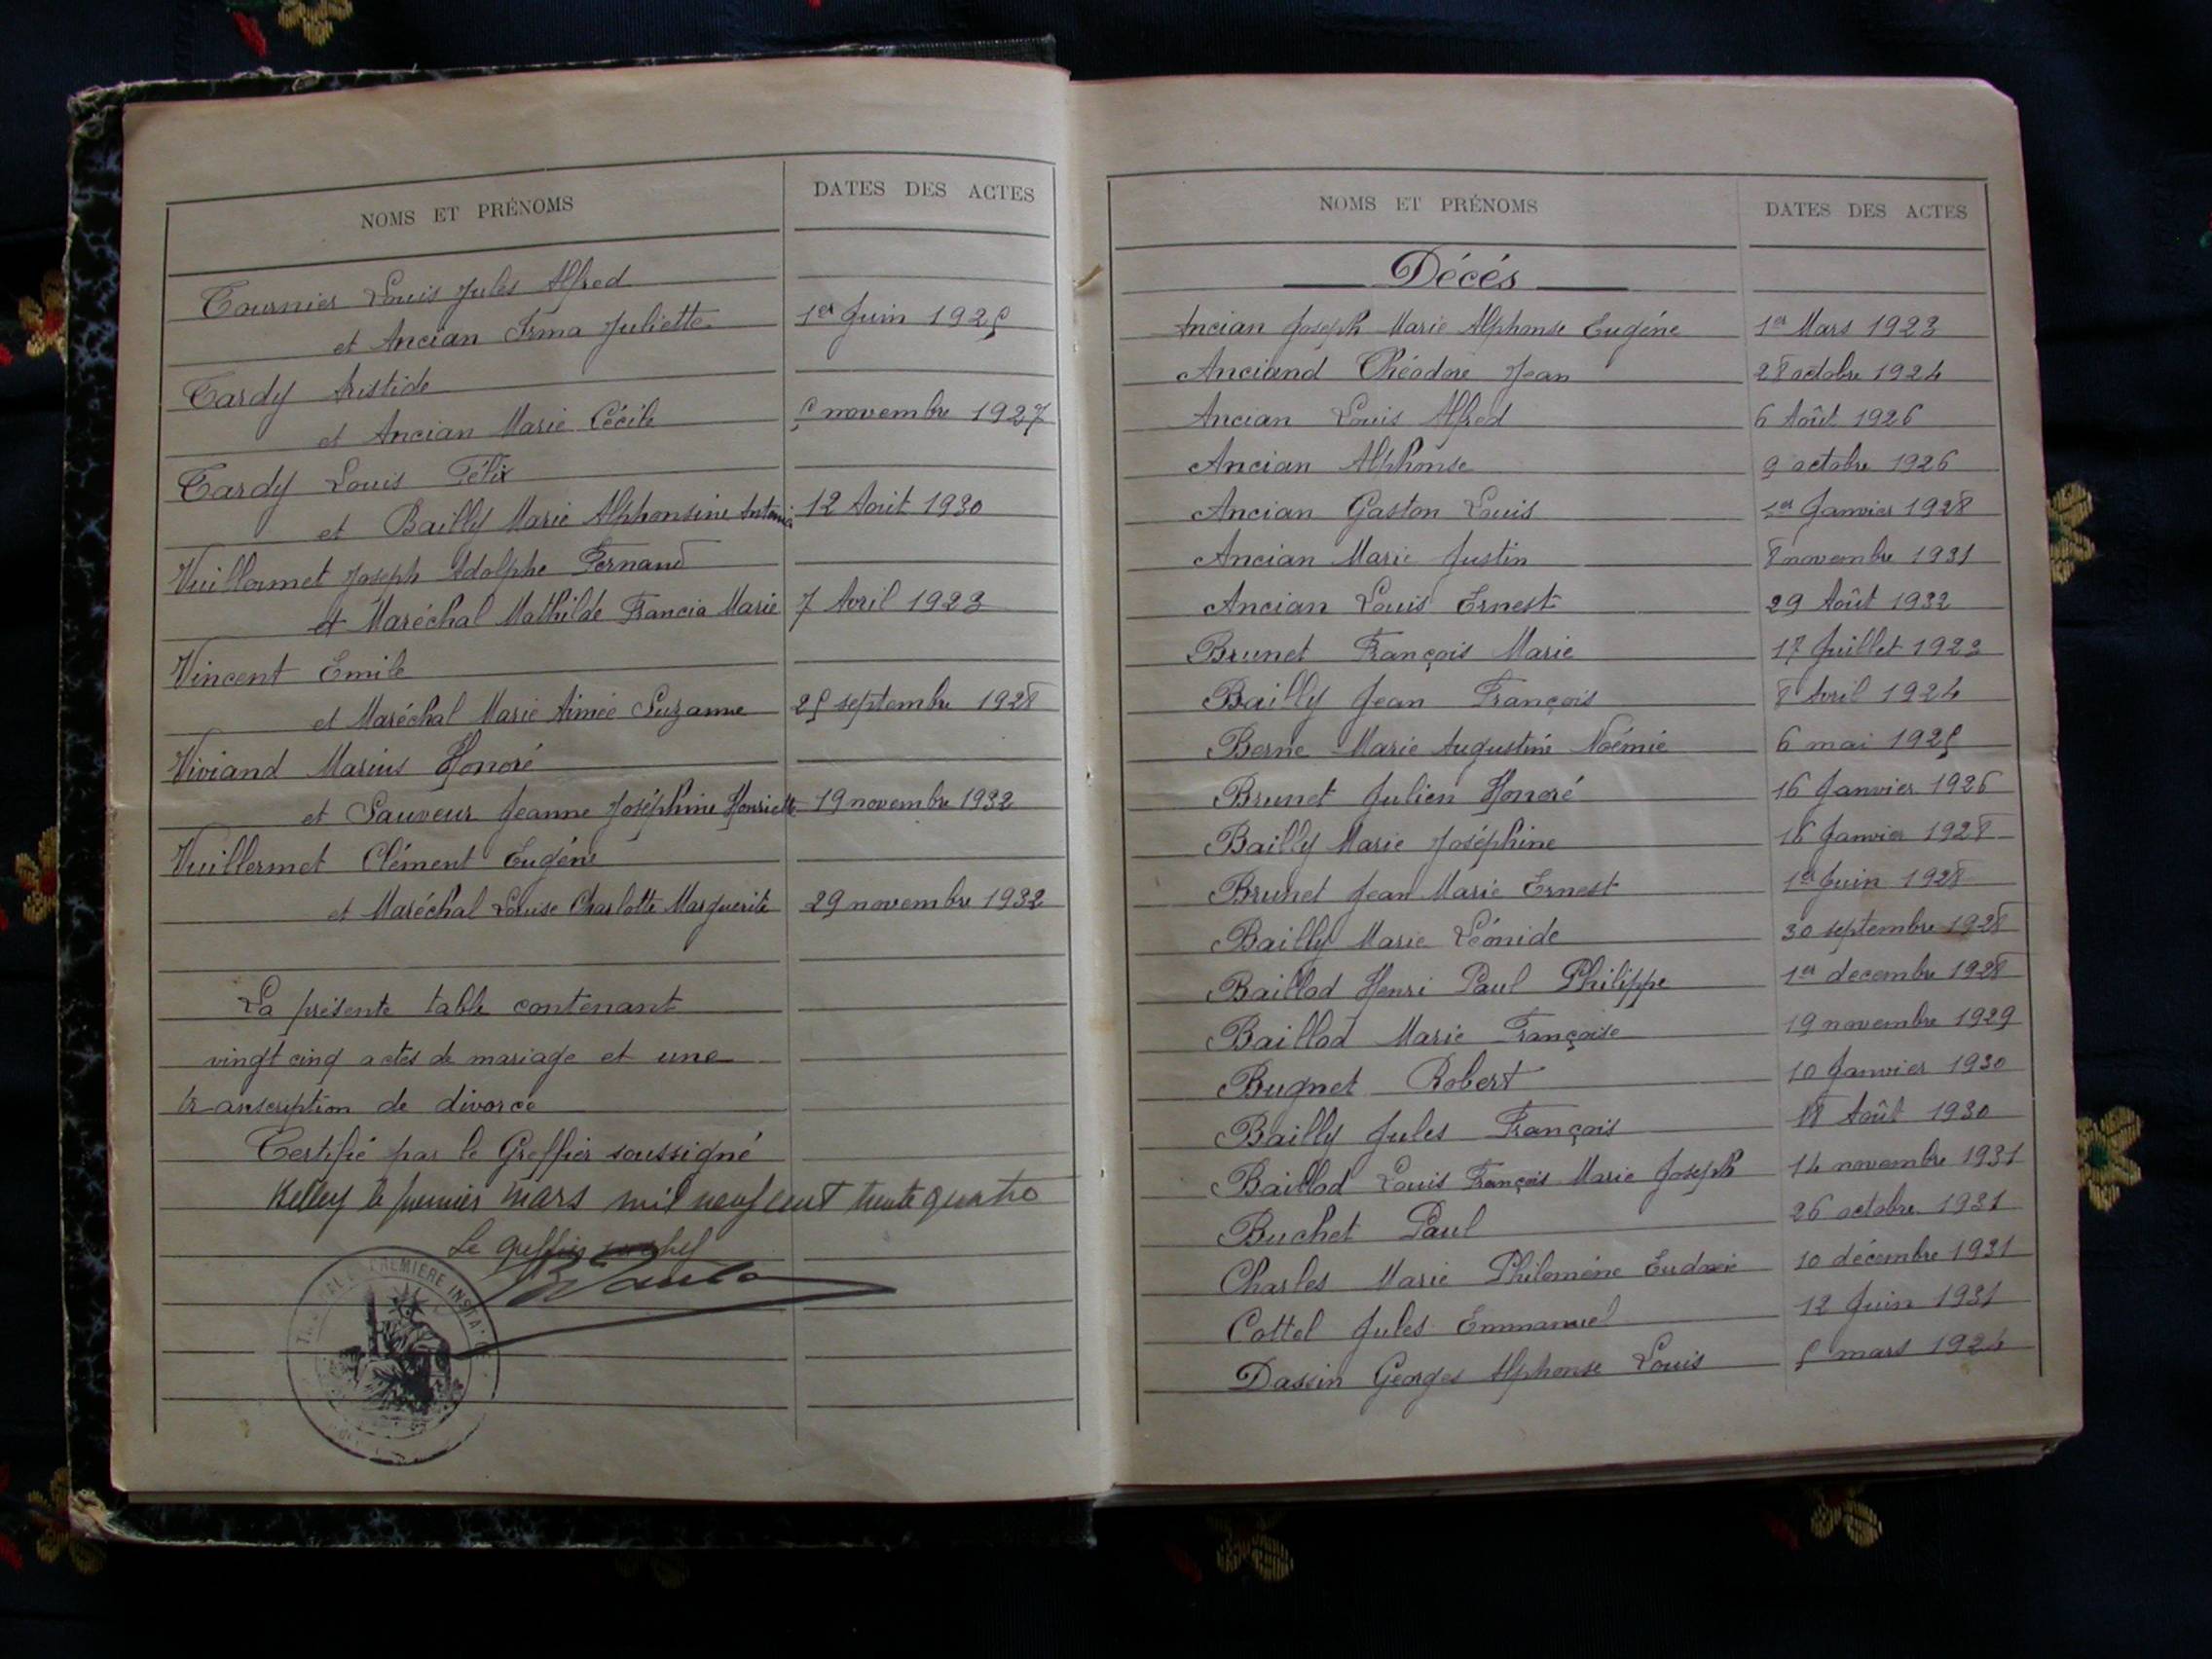 NOMS ET PRÉNOMS
DATES DES ACTES
Tournier Louis Jules Alfred
et Ancian Irma Juliette 1er Juin 1925
Tardy Aristide
et Ancian Marie Cécile 5 novembre 1927
Tardy Louis Félix
et Bailly Marie Alphonsine Antonia 12 Août 1930
Vuillermet Joseph Adolphe Fernand
et Maréchal Mathilde Francia Marie 7 Avril 1923
Vincent Emile
et Maréchal Marie Aimée Suzanne 25 septembre 1928
Viviand Marius Honoré
et Sauveur Jeanne Joséphine Henriette 19 novembre 1932
Vuillermet Clément Eugène
et Maréchal Louise Charlotte Marguerite 29 novembre 1932
La présente table contenant
vingt cinq actes de mariage et une
transcription de divorce
Certifié par le Greffier soussigné
le premier mars mil neuf cent trente quatre
Le greffier
PREMIERE INSTA
NOMS ET PRÉNOMS
DATES DES ACTES
Décés
Ancian Joseph Marie Alphonse Eugéne 1er Mars 1923
Anciand Théodore Jean 28 octobre 1924
Ancian Louis Alfred 6 Août 1926
Ancian Alphonse 9 octobre 1926
Ancian Gaston Louis 1er Janvier 1928
Ancian Marie Justin 8 novembre 1931
Ancian Louis Ernest 29 Août 1932
Brunet François Marie 17 Juillet 1923
Bailly Jean François 8 Avril 1924
Berne Marie Augustine Noémie 6 mai 1925
Brunet Julien Honoré 16 Janvier 1926
Bailly Marie Joséphine 16 Janvier 1928
Brunet Jean Marie Ernest 1er Juin 1928
Bailly Marie Léonide 30 septembre 1928
Baillod Henri Paul Philippe 1er decembre 1928
Baillod Marie Françoise 19 novembre 1929
Bugnet Robert 10 Janvier 1930
Bailly Jules François Août 1930
Baillod Louis François Marie Joseph 14 novembre 1931
Buchet Paul 26 octobre 1931
Charles Marie Philoméne Eudoxie 10 décembre 1931
Cottel Jules Emmanuel 12 Juin 1931
Dassin Georges Alphonse Louis 5 mars 1924